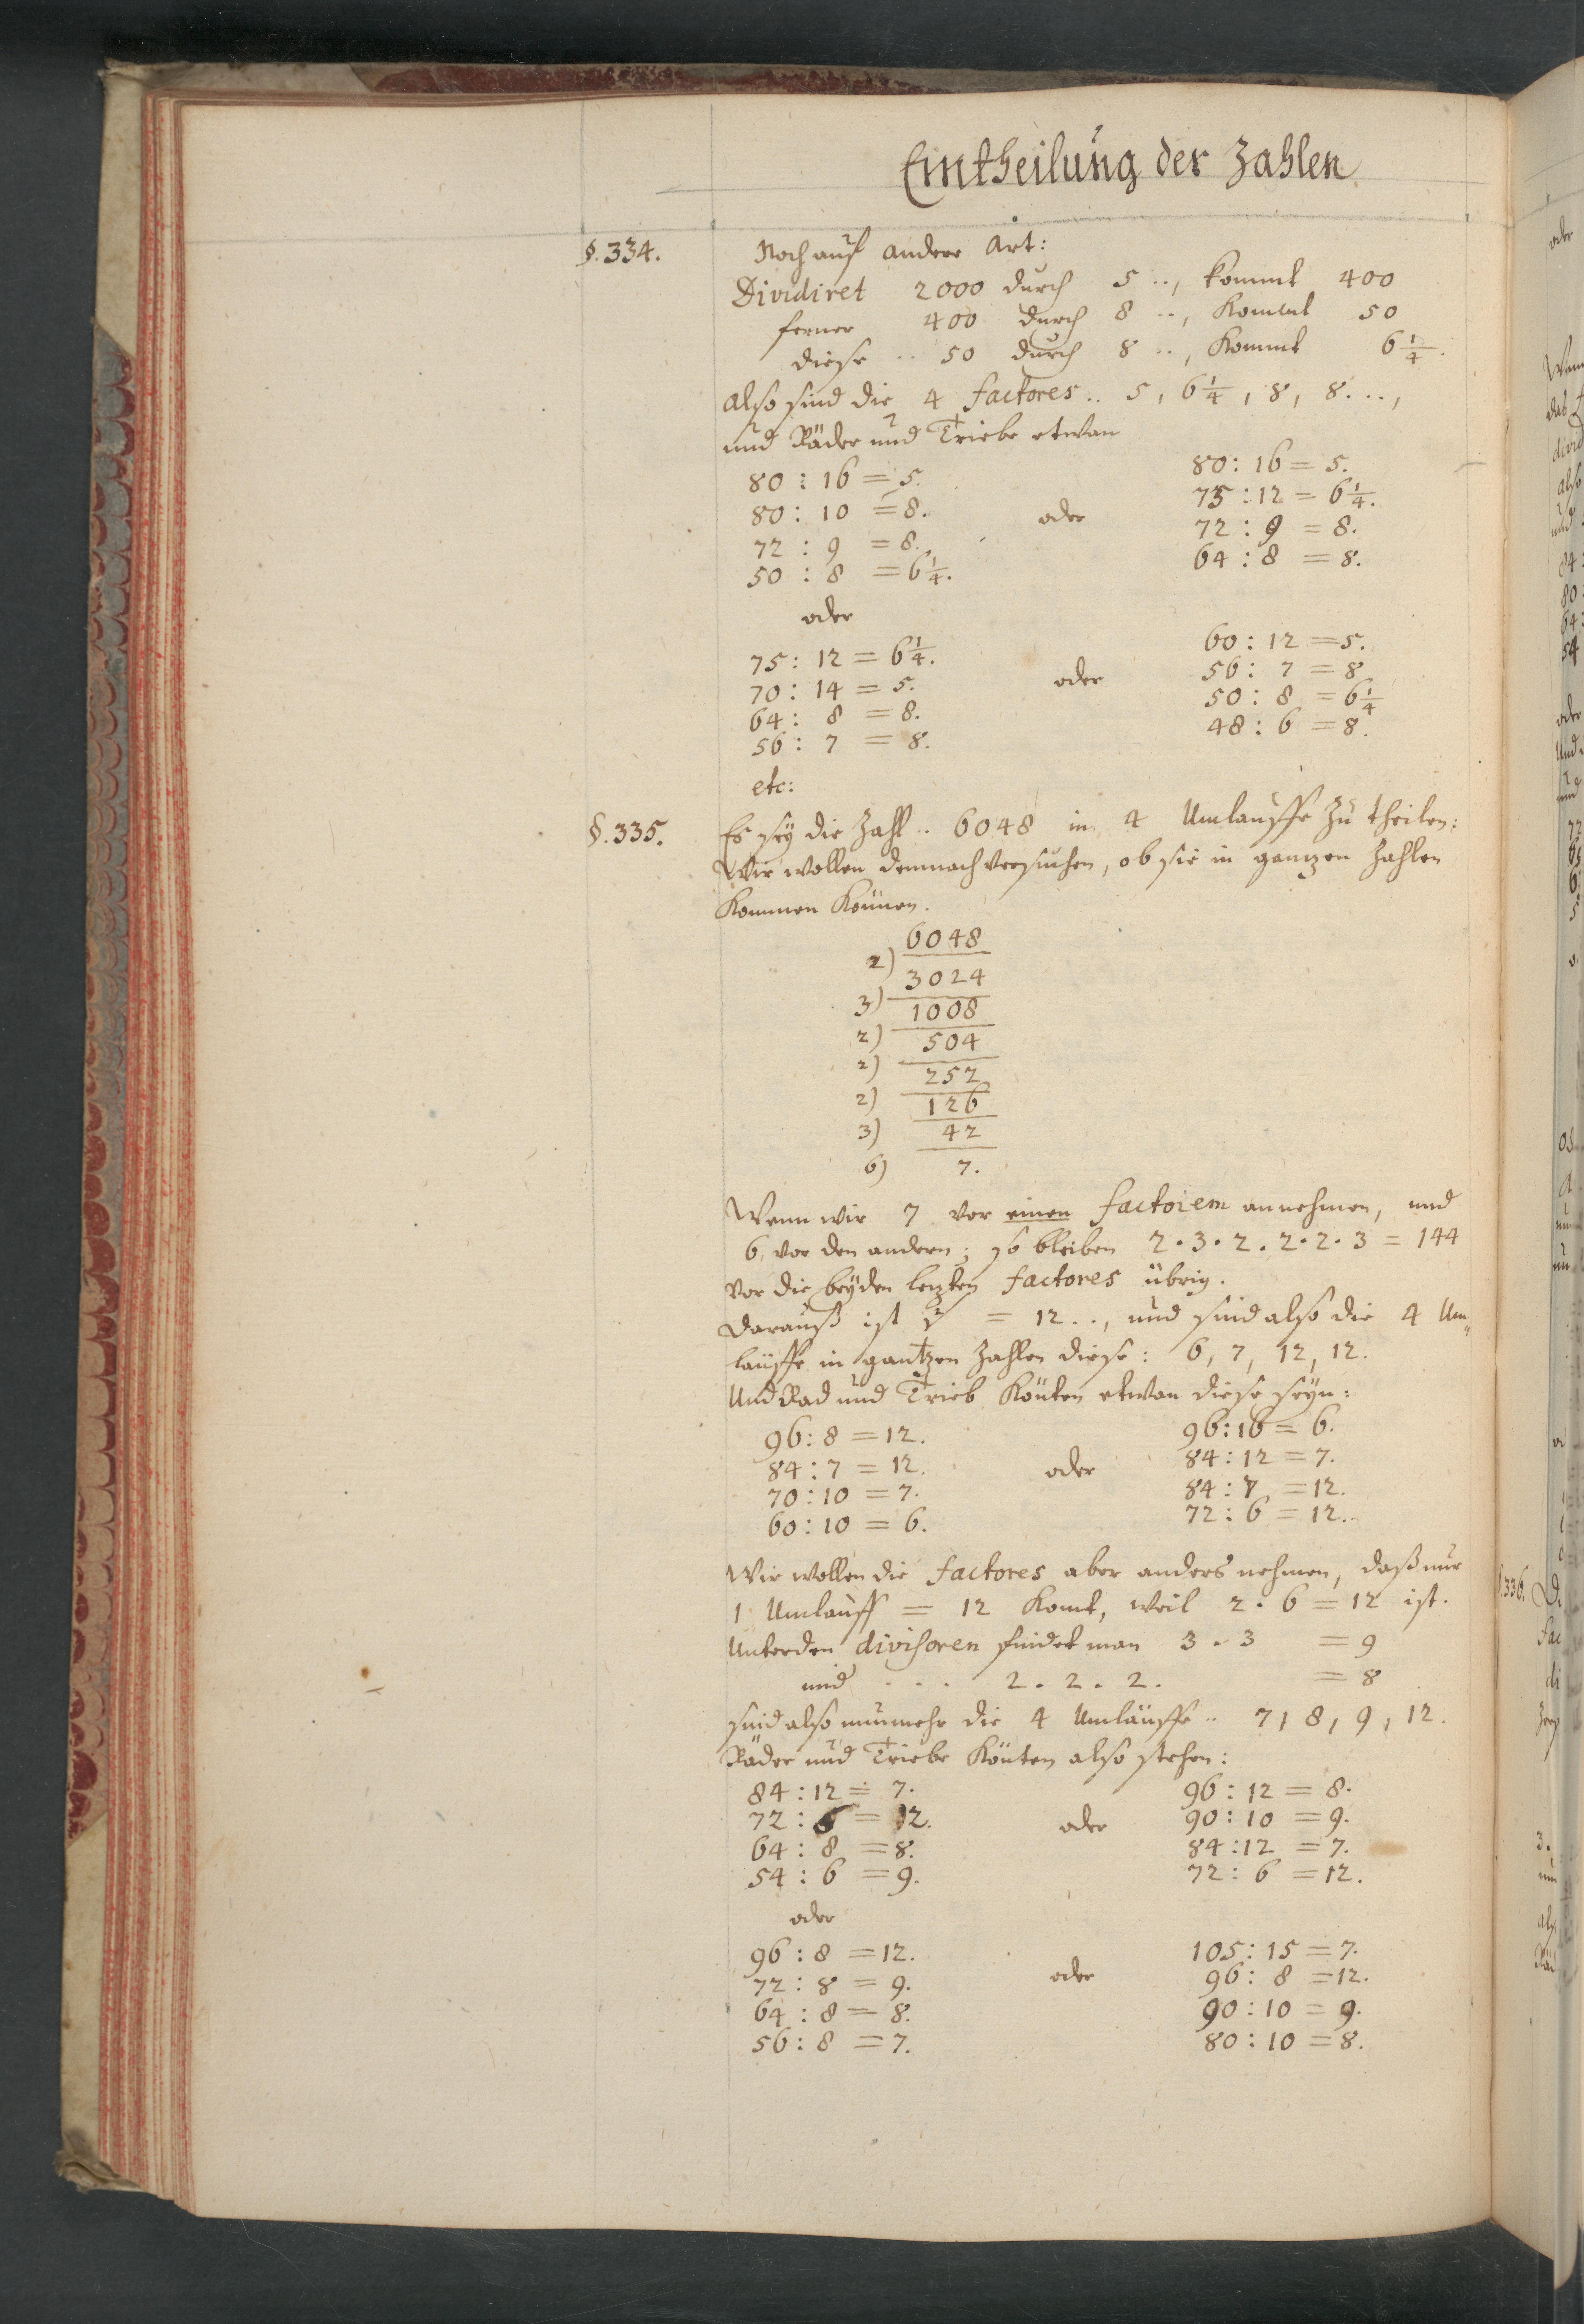 Eintheilung der Zahlen
§. 334. Noch auf andere Art:
Dividiret 2000 durch 5 .., kommt 400
ferner 400 durch 8 .., kommt 50
diese .. 50 durch 8 .., kommt 6 1/4.
also sind die 4 factores .. 5, 6 1/4, 8, 8. ..,
und Räder und Triebe etwan
80 : 16 = 5. 80 : 16 = 5.
80 : 10 = 8. oder 75 : 12 = 6 1/4.
72 : 9 = 8. 72 : 9 = 8.
50 : 8 = 6 1/4. 64 : 8 = 8.
oder
75 : 12 = 6 1/4. 60 : 12 = 5.
70 : 14 = 5. oder 56 : 7 = 8
64 : 8 = 8. 50 : 8 = 6 1/4
56 : 7 = 8. 48 : 6 = 8.
etc:
§. 335. Es sey die Zahl .. 6048 in 4 Umlauffe zu theilen:
Wir wollen demnach versuchen, ob sie in gantzen Zahlen
kommen können.
6048
2) 3024
3) 1008
2) 504
2) 252
2) 126
3) 42
6) 7.
Wenn wir 7 vor einen factorem annehmen, und
6 vor den andern; so bleiben 2 · 3 · 2 . 2 · 2 · 3 = 144
vor die beyden letzten factores übrig.
Darauß ist = 12 .., und sind also die 4 Um„
läuffe in gantzen Zahlen diese: 6, 7, 12, 12.
Und Rad und Trieb könten etwan diese seyn:
96 : 8 = 12. 96 : 16 = 6.
84 : 7 = 12. oder 84 : 12 = 7.
70 : 10 = 7. 84 : 7 = 12.
60 : 10 = 6. 72 : 6 = 12.
Wir wollen die factores aber anders nehmen, daß nur
1 Umlauff = 12 komt, weil 2 · 6 = 12 ist.
Unter den divisoren findet man 3 . 3 = 9
und . . . 2 . 2 . 2. = 8
sind also nunmehr die 4 Umläuffe .. 7, 8, 9, 12.
Räder und Triebe könten also stehen:
84 : 12 = 7. 96 : 12 = 8.
72 : 6 = 12. oder 90 : 10 = 9.
64 : 8 = 8. 84 : 12 = 7.
54 : 6 = 9. 72 : 6 = 12.
oder
96 : 8 = 12. 105 : 15 = 7.
72 : 8 = 9. oder 96 : 8 = 12.
64 : 8 = 8. 90 : 10 = 9.
56 : 8 = 7. 80 : 10 = 8.